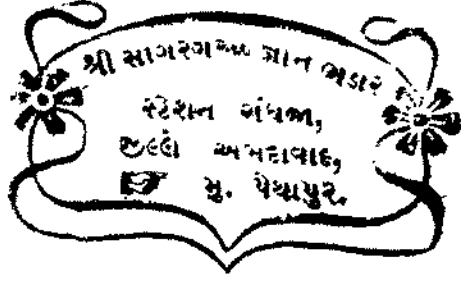 શ્રી સાગરગચ્છ જ્ઞાન ભંડાર
સ્ટેશન રાંધજા,
જીલ્લે અમદાવાદ,
મુ. પેથાપુર.